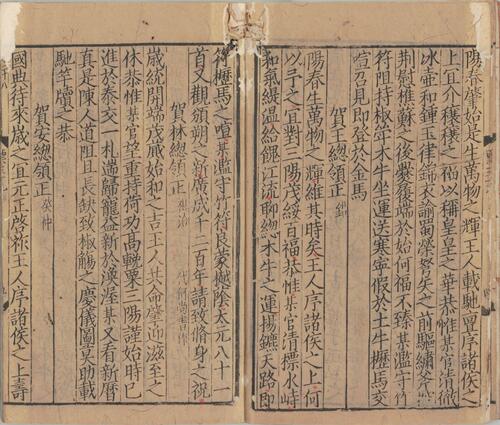 陽春肇始是生萬物之輝王人載馳序諸侯之
上宜介穰穰之福以稱皇皇之華恭惟某官清徹
冰壷和鍾玉律錦衣諭蜀矣之前驅繡斧
荆慰樵蘇之後爰履端於始何福不臻某濫守竹
符阻持椒斝木牛坐運送寒寧假於土牛櫪馬交
喧召見即登於金馬
賀王總領正
陽春生萬物之輝維其時矣王人序諸侯之上何
以予之宜對三陽茂綏百福恭惟某官清標水峙
和氣緹溫給餽江流聊總木牛之運揚鑣天路即
櫪馬之喧某濫守竹符良蒙樾陰太元八十一
首又觀頒朔之新廣成千二百年請致脩身之祝
賀林總領正
歲統開端茂始和之吉王人共命肇迎滋至之
休恭惟某官望重持荷功高轉粟三陽謹始時已
進於泰交一札趨歸寵益新於渙渥某又看新曆
真是陳人道阻且長缺致椒觴之慶儀圖莫助載
馳竿牘之恭
賀安總領正 癸仲
國典待來歲之宜元正啓祚王人序諸侯之上壽